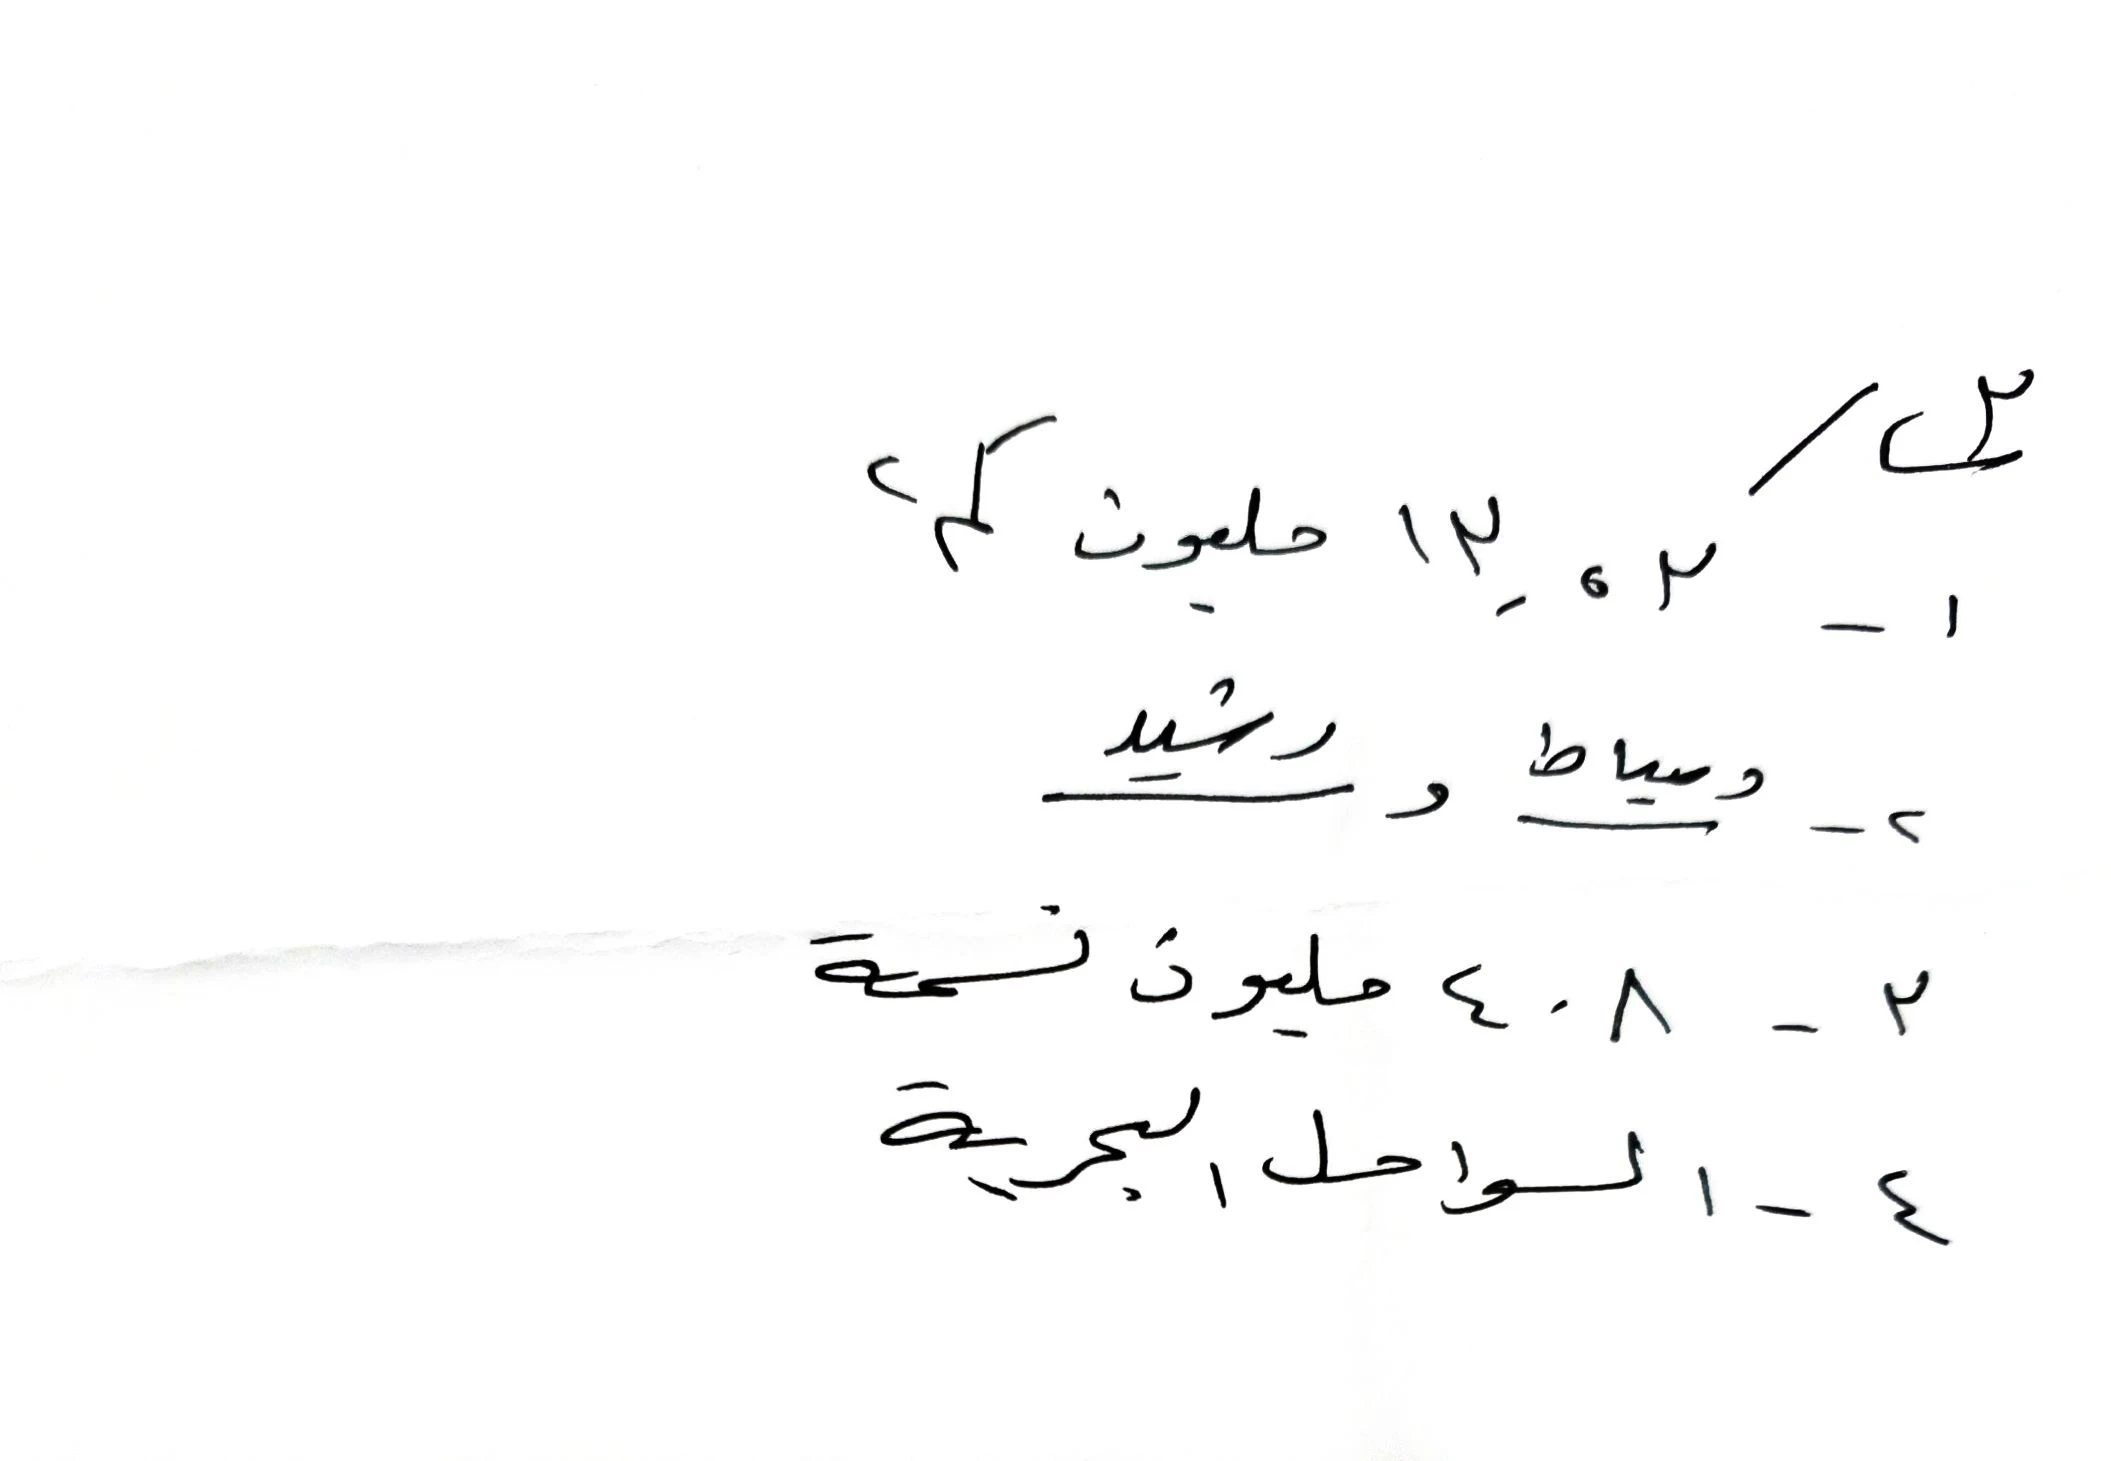 س٣/
١ - ١٣.٥٣ مليون كم٢
٢ - دمياط و رشيد
٣ - ٤٠٨ مليون نسمة
٤ - السواحل البحرية